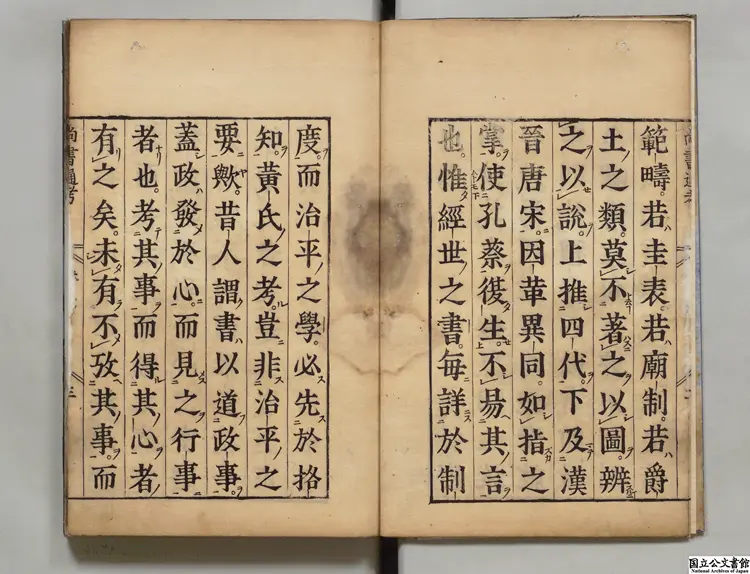 範疇。若圭表。若廟制。若爵
土之類。莫不著之以圖。辨
之以說。上推四代。下及漢
晉唐宋。因革異同。如指之
掌。使孔蔡復生。不易其言
也。惟經世之書。毎詳於制
度。而治平之學。必先於挌
知。黃氏之考。豈非治平之
要歟。昔人謂書以道政事。
蓋政發於心。而見之行事
者也。考其事而得其心者
有之矣。未有不攷其事。而
尚書通考
三
国立公文書館
National Archives of Japan